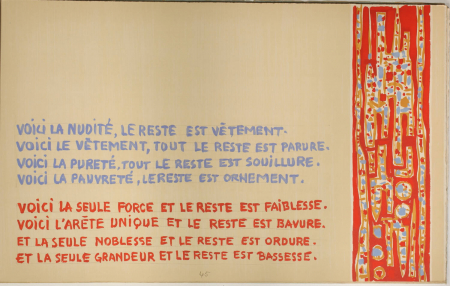 VOICI LA NUDITÉ, LE RESTE EST VÊTEMENT.
VOICI LE VÊTEMENT, TOUT LE RESTE EST PARURE.
VOICI LA PURETÉ, TOUT LE RESTE EST SOUILLURE.
VOICI LA PAUVRETÉ, LE RESTE EST ORNEMENT.
VOICI LA SEULE FORCE ET LE RESTE EST FAIBLESSE.
VOICI L'ARÊTE UNIQUE ET LE RESTE EST BAVURE.
ET LA SEULE NOBLESSE ET LE RESTE EST ORDURE.
ET LA SEULE GRANDEUR ET LE RESTE EST BASSESSE.